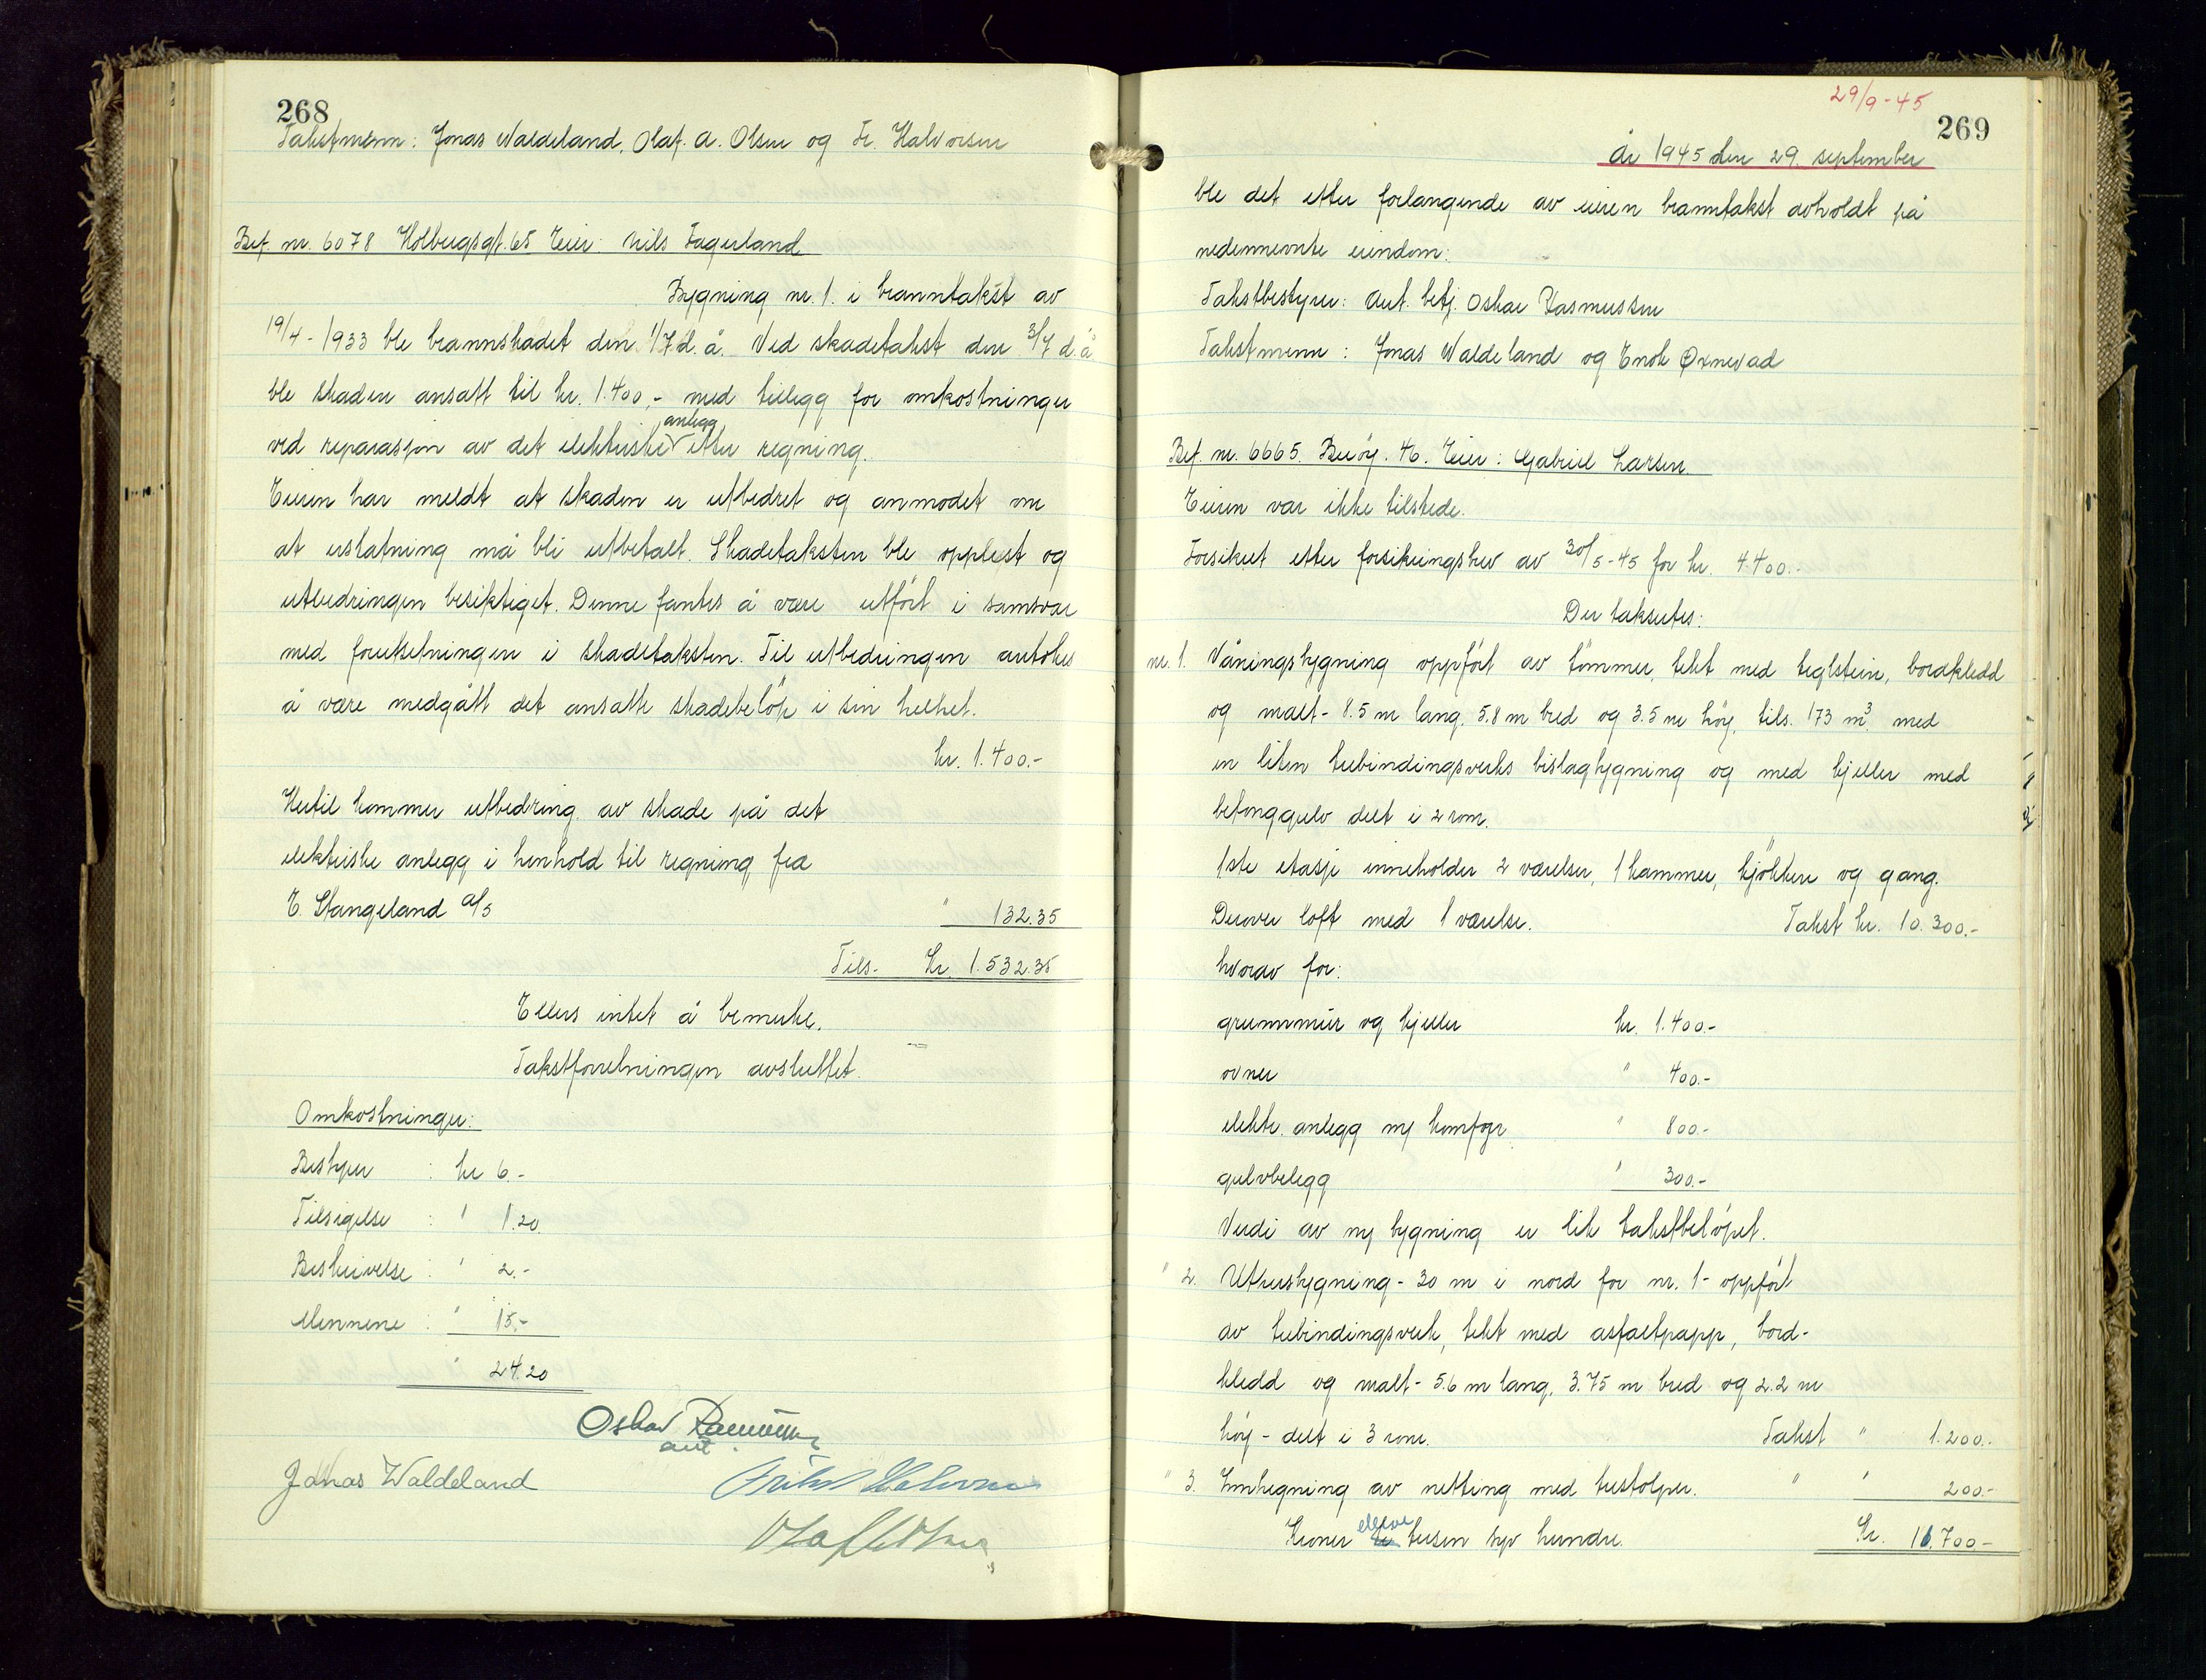 268
Takstmenn: Jonas Waldeland, Olaf. A. Olsen og Fr. Halvorsen
Bef. nr. 6078 Holbergsgt. 65 Eier: Nils Fagerland
Bygning nr. 1. i branntakst av
19/4 - 1933 ble brannskadet den 1/7 d. å. Ved skadetakst den 3/7 d. å
ble skaden ansatt til kr. 1.400,- med tillegg for omkostninger
ved reparasjon av det elektriske anlegg etter regning.
Eieren har meldt at skaden er utbedret og anmodet om
at erstatning må bli utbetalt. Skadetaksten ble opplest og
utbedringen besiktiget. Denne fantes å være utført i samsvar
med forutsetningen i skadetaksten. Til utbedringen antokes
å være medgått det ansatte skadebeløp i sin helhet.
kr. 1.400.-
Hertil kommer utbedring av skade på det
elektriske anlegg i henhold til regning fra
E. Stangeland A/S " 132.35
Tils. Kr. 1.532.35
Ellers intet å bemerke.
Takstforretningen avsluttet.
Omkostninger:
Bestyrer : kr 6.-
Tilsigelse : " 1.20.
Beskrivelse : " 2.-
Mennene : " 15.-
" 24.20
Oskar Rasmussen
aut.
Jonas Waldeland
29/9-45
269
År 1945 den 29. september
ble det etter forlangende av eieren branntakst avholdt på
nedennevnte eiendom:
Takstbestyrer: Aut. betj. Oskar Rasmussen
Takstmenn: Jonas Waldeland og Enok Oxnevad
Bef. nr. 6665. Buøy. 46. Eier: Gabriel Larsen
Eieren var ikke tilstede.
Forsikret etter forsikringsbev av 30/5-45 for kr. 4.400.-
Der takseres:
nr. 1. Våningsbygning oppført av tømmer, tekt med teglstein, bordkledd
og malt - 8.5 m lang, 5.8 m bred og 3.5 m høy, tils. 173 m3. med
en liten trebindingsverks bislagbygning og med kjeller med
betonggulv delt i 2 rom.
1ste etasje inneholder 2 værelser, 1 kammer, kjøkken og gang.
Derover loft med 1 værelse. Takst kr. 10.300.-
hvorav for:
grunnmur og kjeller kr. 1.400.-
ovner " 400.-
elektr. anlegg m/ komfyr " 800.-
gulvbelegg " 300.-
Verdi av ny bygning er lik takstbeløpet.
" 2. Uthusbygning - 30 m i nord for nr. 1 - oppført
av trebindingsverk, tekt med asfaltpapp, bord-
kledd og malt - 5.6 m lang, 3.75 m bred og 2.2 m
høy - delt i 3 rom. Takst " 1.200.-
" 3. Innhegning av netting med trestolper. " " 200.-
Kroner elleve tusen syv hundre. Kr. 11.700-